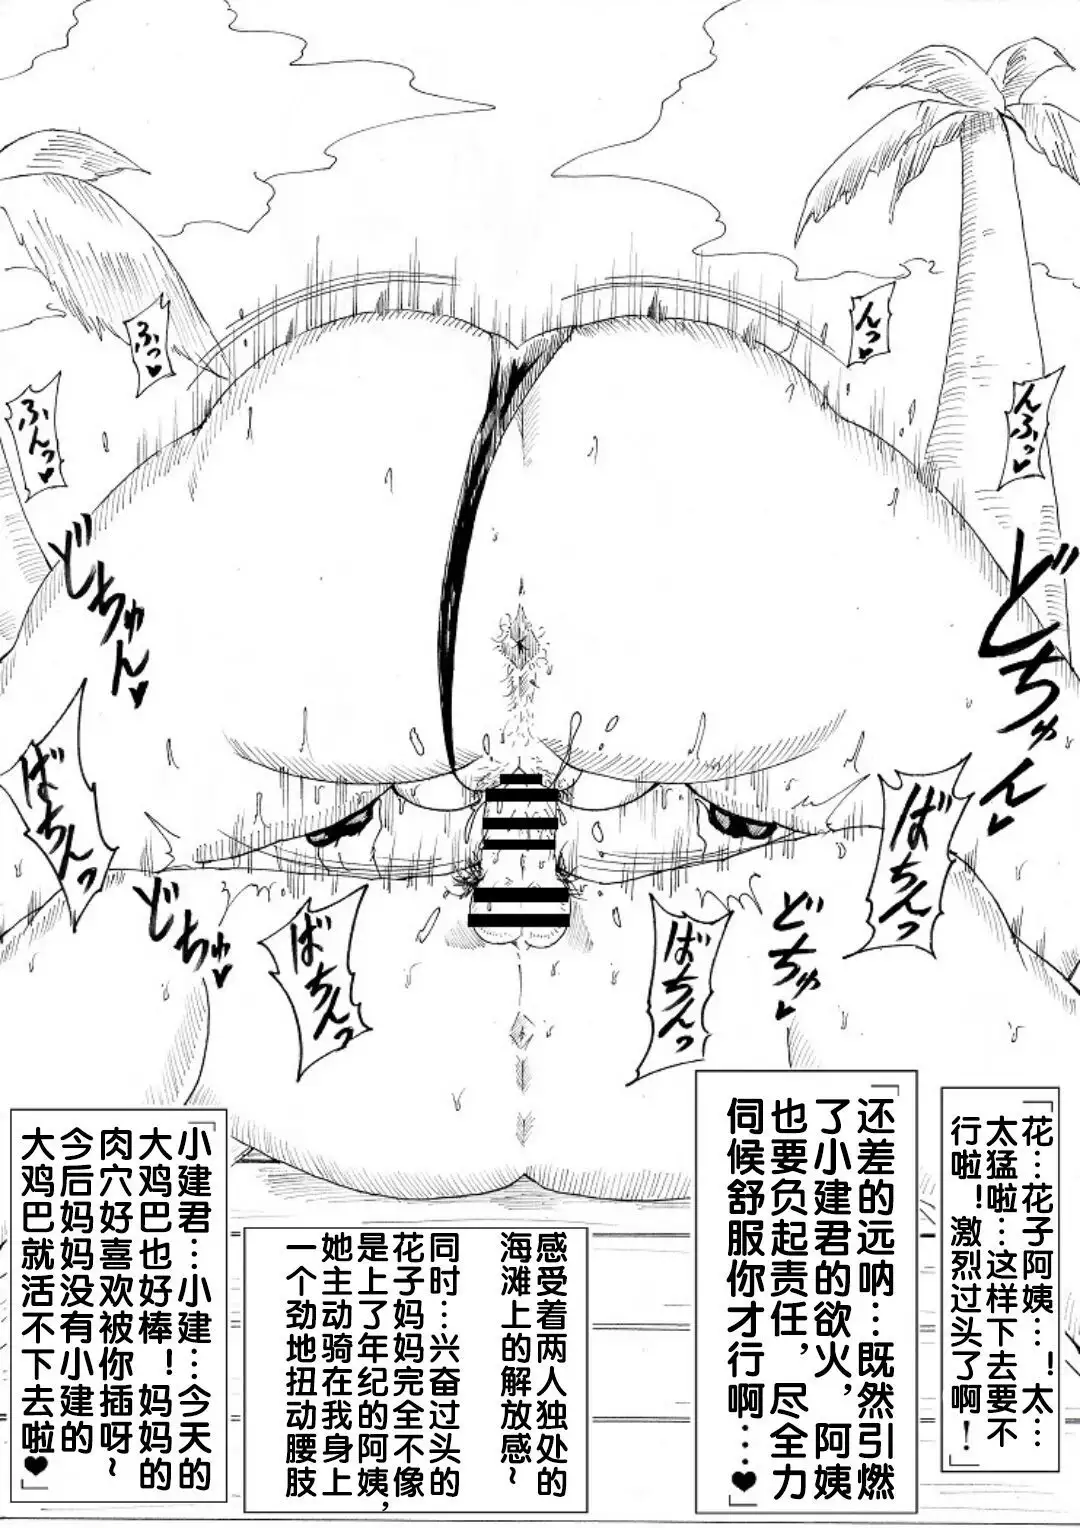 「花…花子阿姨…！太…
太猛啦…这样下去要不
行啦！激烈过头了啊！」
「还差的远呐…既然引燃
了小建君的欲火，阿姨
也要负起责任，尽全力
伺候舒服你才行啊…♥」
感受着两人独处的
海滩上的解放感~
同时…兴奋过头的
花子妈妈完全不像
是上了年纪的阿姨，
她主动骑在我身上
一个劲地扭动腰肢
「小建君…小建…今天的
大鸡巴也好棒！妈妈的
肉穴好喜欢被你插呀~
今后妈妈没有小建的
大鸡巴就活不下去啦♥」
んっ♥
んふっ♥
ふっ♥
ふんっ♥
どちゅん♥
どちゅん♥
ばちんっ
ばちんっ
どちゅ♥
ばちんっ
ばちんっ
どちゅ♥